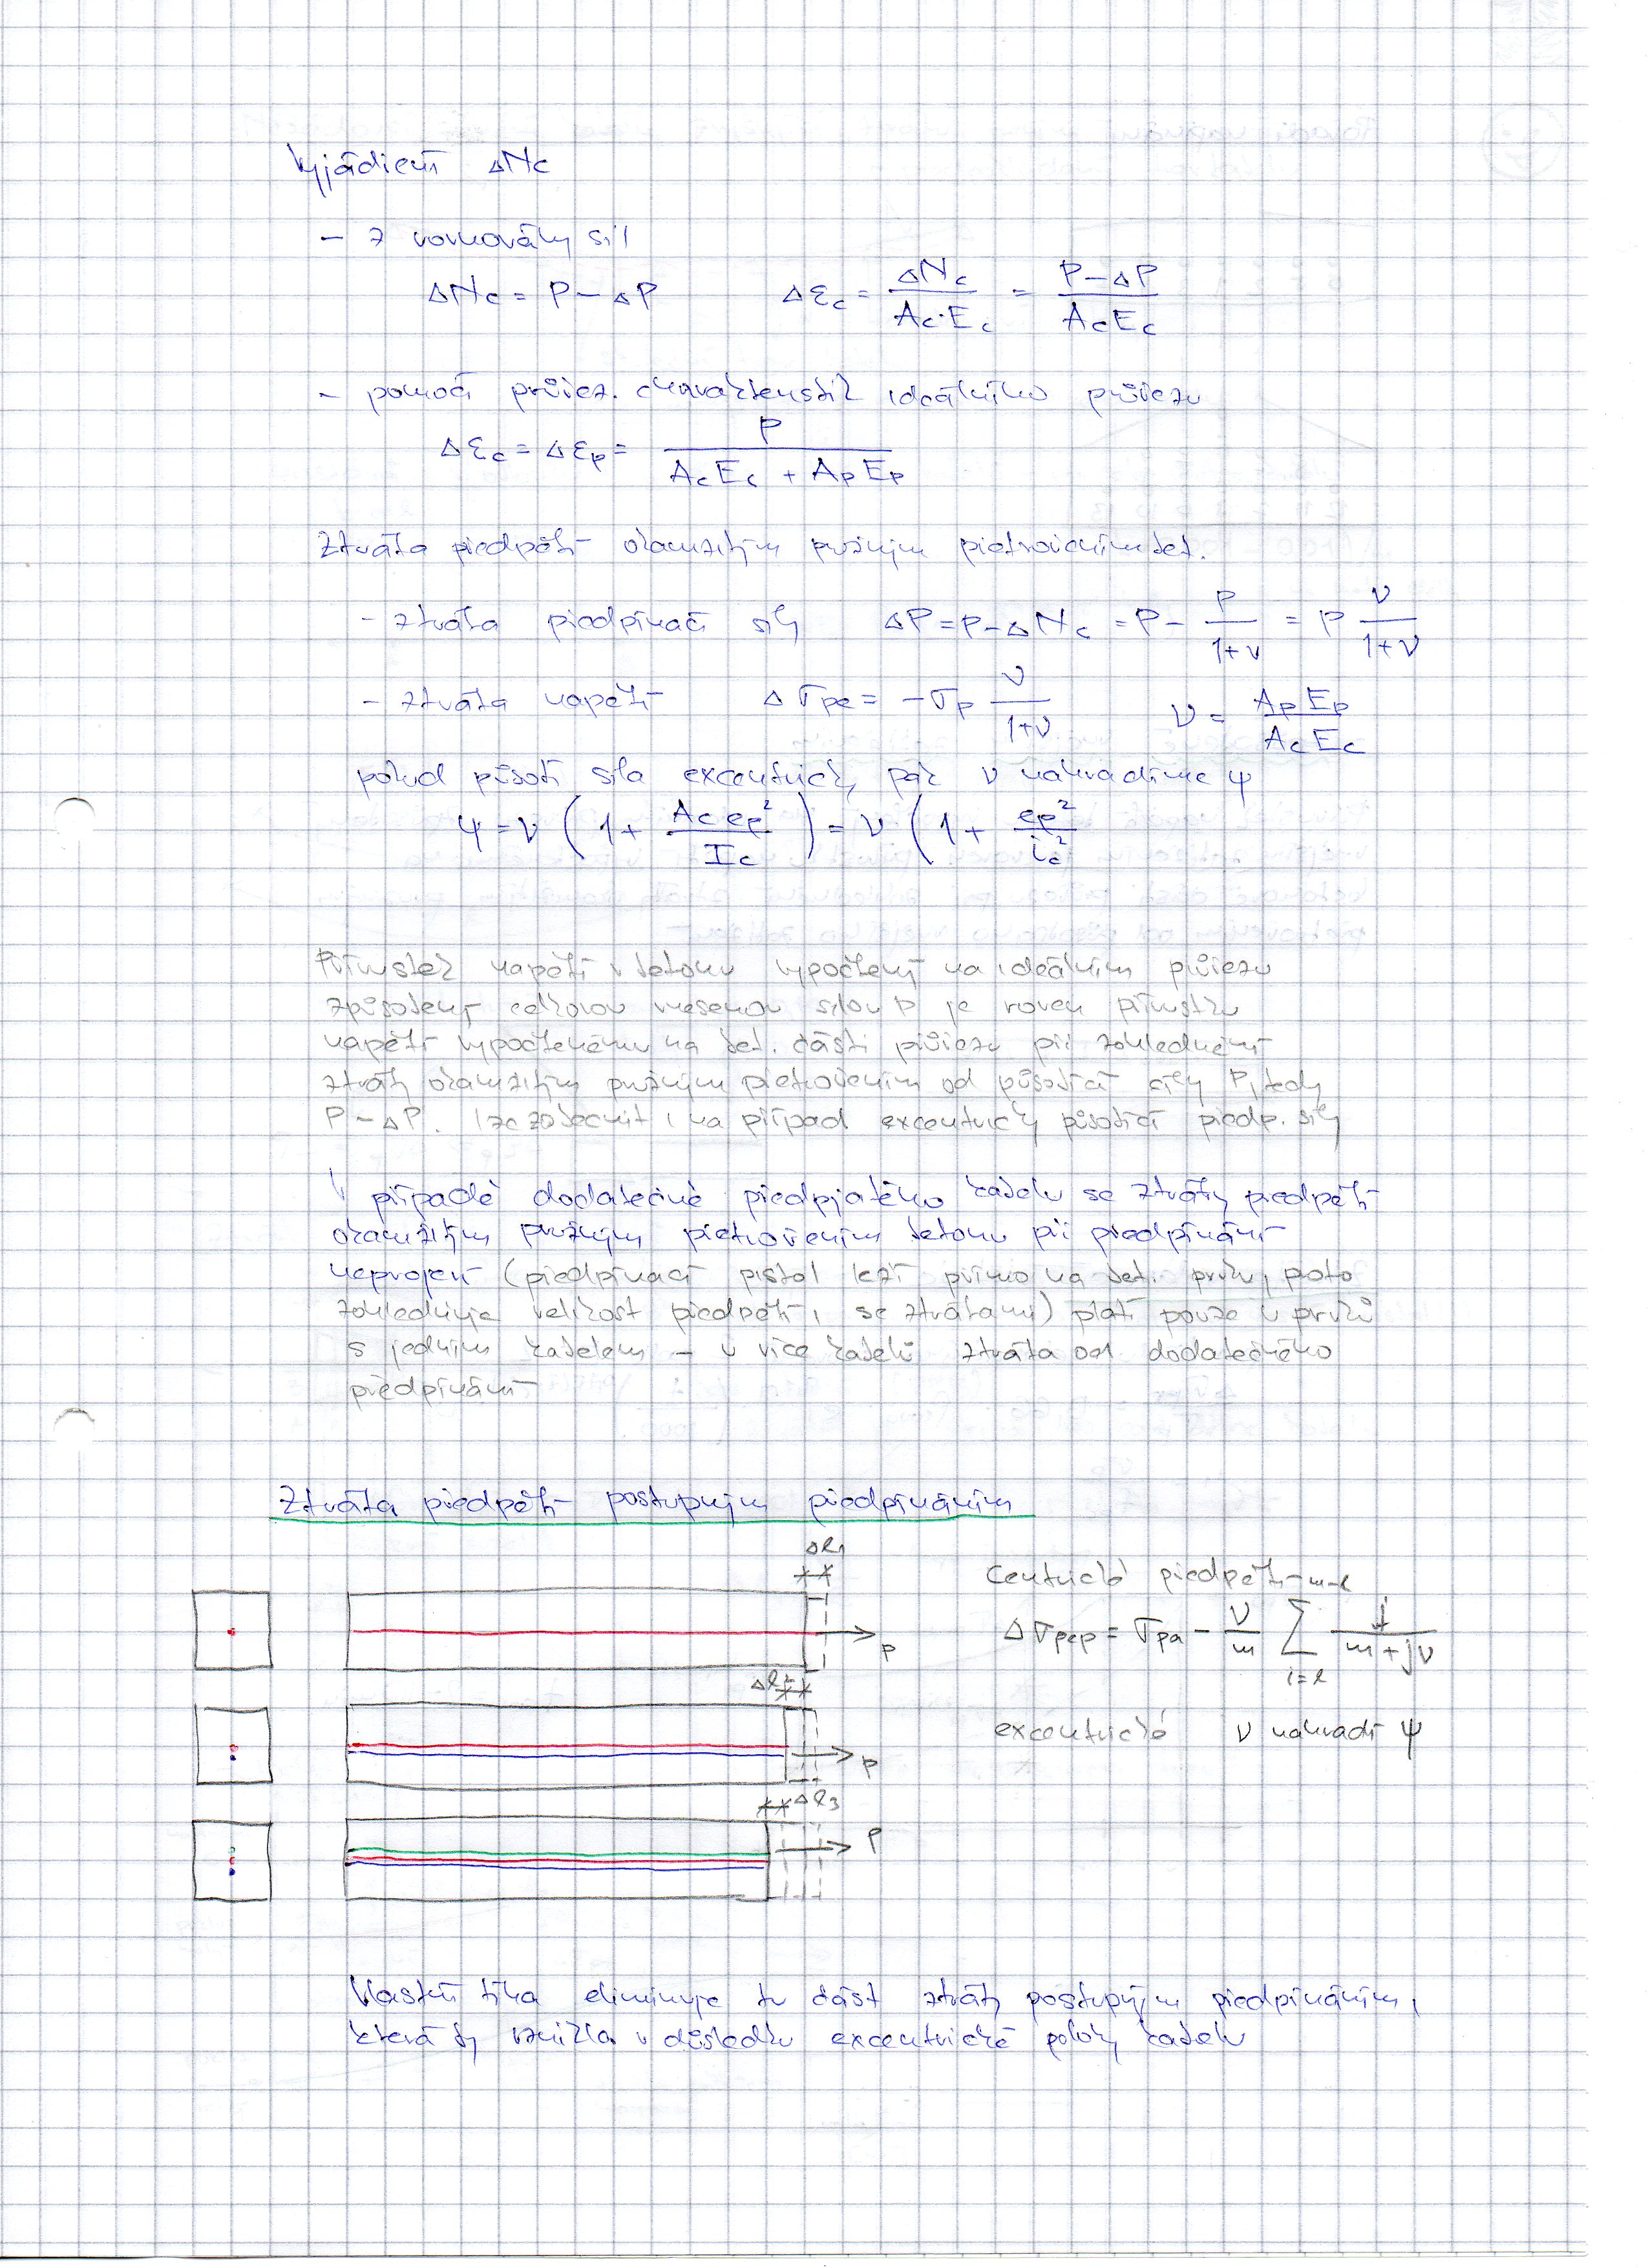 Vyjádření ΔNc
- z rovnováhy sil
ΔNc = P - ΔP   Δεc = ΔNc / (Ac·Ec) = (P - ΔP) / (AcEc)
- pomocí průřez. charakteristik ideálního průřezu
Δεc = Δεp = P / (AcEc + ApEp)
Ztráta předpětí okamžitým pružným přetvořením bet.
- ztráta předpínací síly   ΔP = P - ΔNc = P - P / (1+ν) = P ν / (1+ν)
- ztráta napětí   Δσpe = -σp ν / (1+ν)   ν = ApEp / (AcEc)
pokud působí síla excentricky, pak ν nahradíme ψ
ψ = ν (1 + Ac ep² / Ic) = ν (1 + ep² / ic²
Přírustek napětí v betonu vypočtený na ideálním průřezu
způsobený celkovou vnesenou silou P je roven přírustku
napětí vypočtenému na bet. části průřezu při zohlednění
ztráty okamžitým pružným přetvořením od působící síly P, tedy
P - ΔP. lze zobecnit i na případ excentricky působící předp. síly
V případě dodatečně předpjatého kabelu se ztráty předpětí
okamžitým pružným přetvořením betonu při předpínání
neprojeví (předpínací pistol leží přímo na bet. prvku, proto
zohledňuje velikost předpětí i se ztrátami) platí pouze u prvků
s jedním kabelem - u více kabelů ztráta od dodatečného
předpínání
Ztráta předpětí postupným předpínáním
Δl1
Centrické předpětí
P
Δσpep = σpa - ν/m Σ j / (m + jν)
Δl2
excentrické   ν nahradí ψ
P
Δl3
P
Vlastní tíha eliminuje tu část ztráty postupným předpínáním,
která by vznikla v důsledku excentrické polohy kabelu